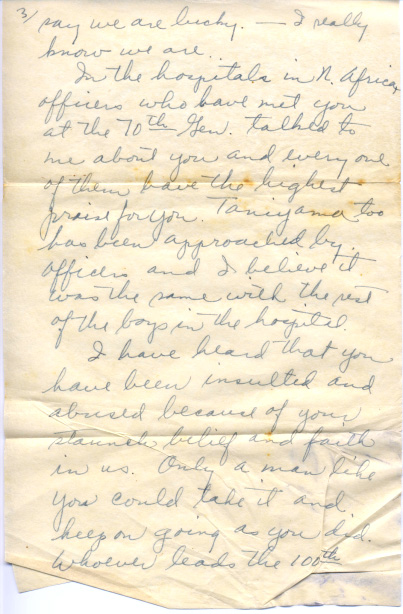 3/
say we are lucky. — I really
know we are.
In the hospitals in N. Africa,
officers who have met you
at the 70th Gen. talked to
me about you and every one
of them have the highest
praise for you. Taniyama too
has been approached by
officers and I believe it
was the same with the rest
of the boys in the hospital.
I have heard that you
have been insulted and
abused because of your
staunch belief and faith
in us. Only a man like
you could take it and
keep on going as you did.
Whoever leads the 100th